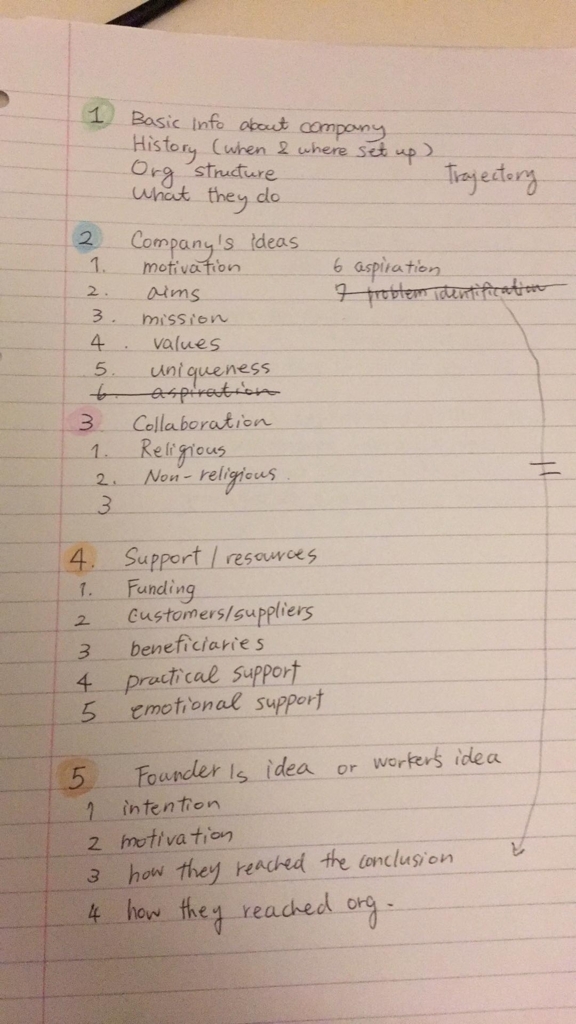 1 Basic info about company
History (when & where set up)
Org structure
Trajectory
What they do
2 Company's ideas
1. motivation
6 aspiration
2. aims
7 problem identification
3. mission
4. values
5. uniqueness
6. aspiration
3 Collaboration
1. Religious
2. Non-religious
3
4. Support / resources
1. Funding
2 Customers/suppliers
3 beneficiaries
4 practical support
5 emotional support
5 Founder's idea or worker's idea
1 intention
2 motivation
3 how they reached the conclusion
4 how they reached org.